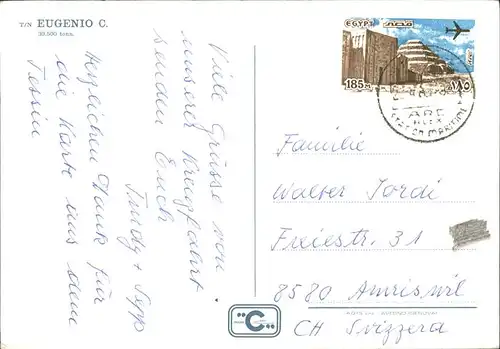 T/N EUGENIO C.
32.500 tons.
Viele Grüsse von
unserer Kreuzfahrt
senden Euch
Trudy + Sepp
Herzlichen Dank für
die Karte aus dem
Tessin
EGYPT مصر
185 M ١٨٥
ARE
ALEX
Familie
Walter Jordi
Freiestr. 31
8580 Amriswil
CH Svizzera
"C"